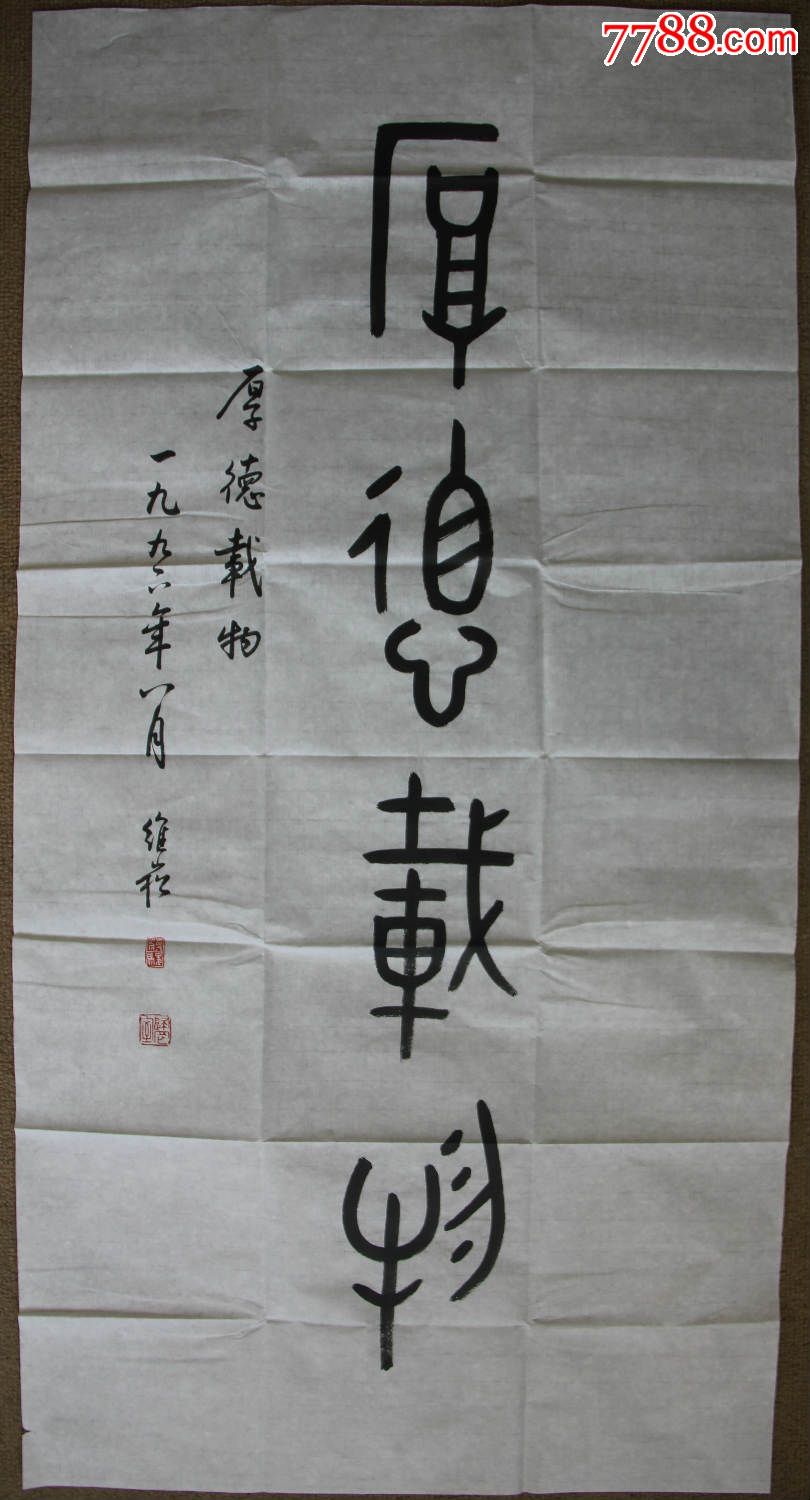 7788.com
厚德載物
厚德載物
一九九六年八月 維崧